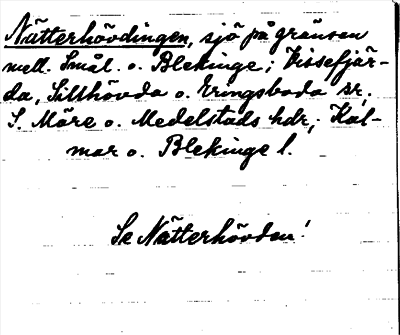 Nätterhövdingen, sjö på gränsen
mell. Smål. o. Blekinge; Vissefjär-
da, Sillhövda o. Eringsboda sr.
S. Möre o. Medelstads hdr, Kal-
mar o. Blekinge l.
Se Nätterhövden!